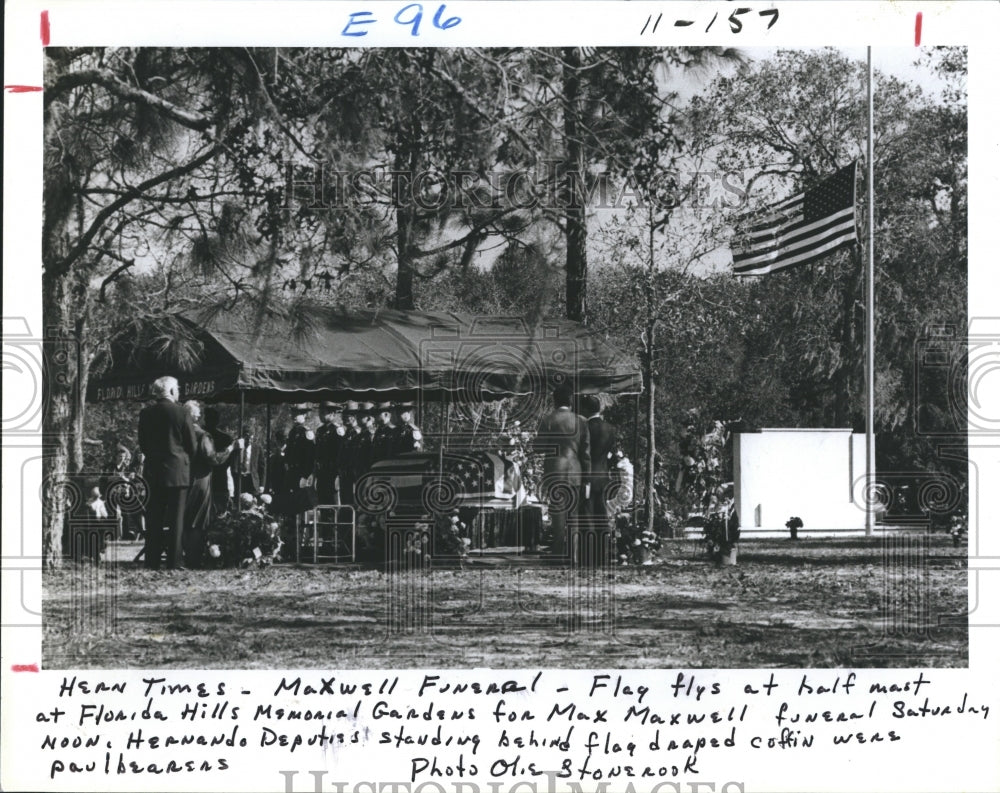 E96 11-157
HISTORIC IMAGES
FLORID HILLS MEMORIAL GARDENS
HERN TIMES - MAXWELL FUNERAL - FLAG FLYS AT HALF MAST
AT FLORIDA HILLS MEMORIAL GARDENS FOR MAX MAXWELL FUNERAL SATURDAY
NOON. HERNANDO DEPUTIES STANDING BEHIND FLAG DRAPED COFFIN WERE
PAULBEARERS PHOTO OLIE STONEROOK
HISTORIC IMAGES